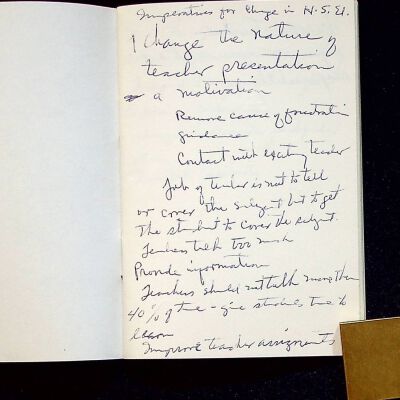 Imperatives for Change in H.S. Ed.
1 Change the nature of
teacher presentation
a motivation
Remove cause of frustration
guidance
Contact with exciting teacher
Job of teacher is not to tell
or cover the subject but to get
The student to cover the subject.
Teachers talk too much
Provide information
Teachers should not talk more then
40% of time - give students time to
learn
Improve teacher assignments